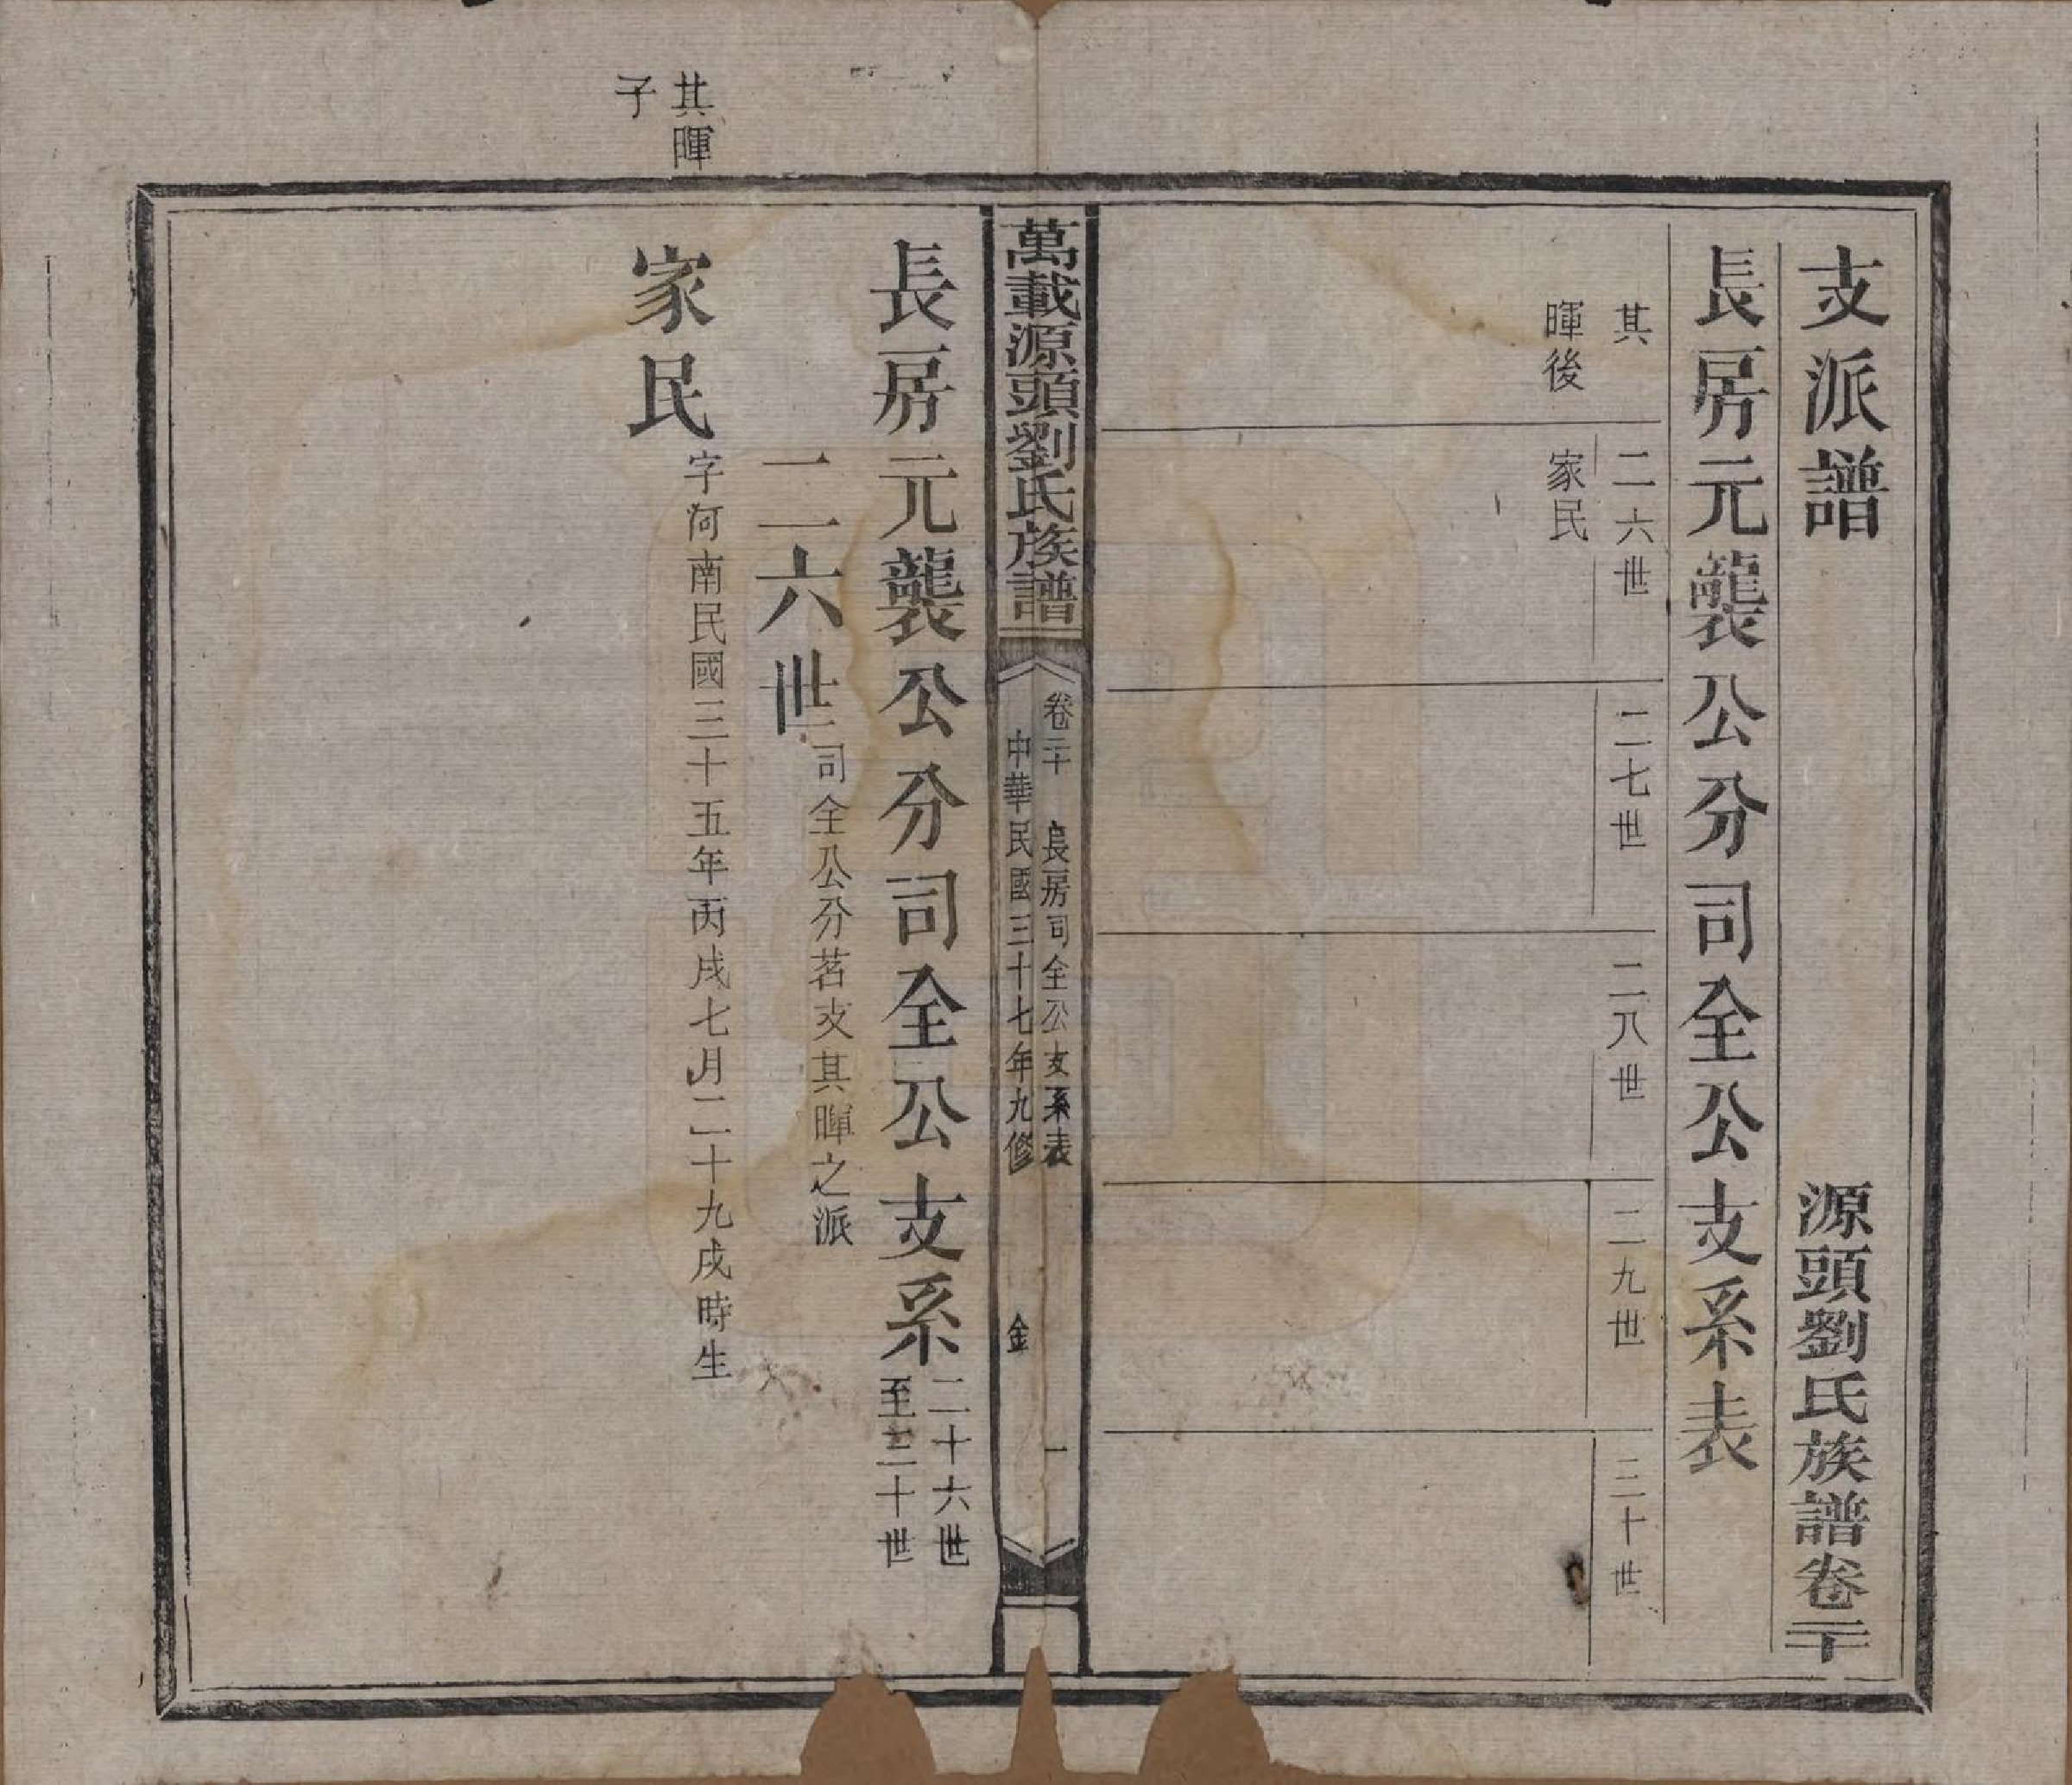 支派譜
源頭劉氏族譜卷二十
長房元襲公分司全公支系表
其
暉後
二六世
二七世
二八世
二九世
三十世
家民
萬載源頭劉氏族譜
卷二十
長房司全公支系表
一
中華民國三十七年九修
金
長房元襲公分司全公支系
二十六世
至三十世
二六世
司全公分茗支其暉之派
其暉
子
家民
字河南民國三十五年丙戌七月二十九戌時生